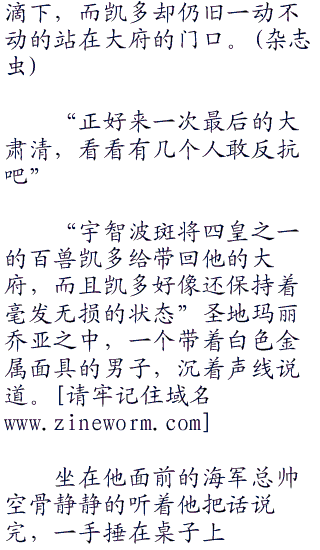 滴下，而凯多却仍旧一动不
动的站在大府的门口。(杂志
虫)
“正好来一次最后的大
肃清，看看有几个人敢反抗
吧”
“宇智波斑将四皇之一
的百兽凯多给带回他的大
府，而且凯多好像还保持着
毫发无损的状态”圣地玛丽
乔亚之中，一个带着白色金
属面具的男子，沉着声线说
道。[请牢记住域名
www.zineworm.com]
坐在他面前的海军总帅
空骨静静的听着他把话说
完，一手捶在桌子上